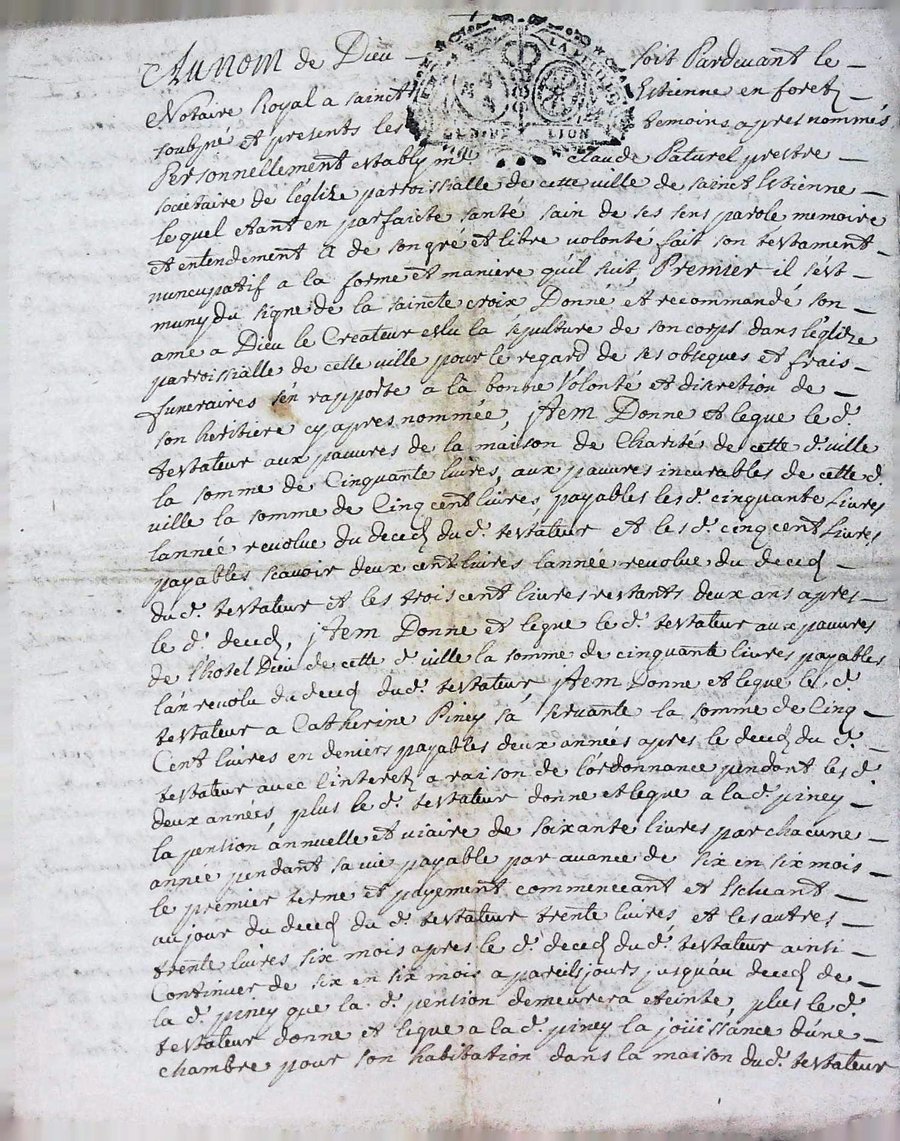 Au nom de Dieu — soit Pardevant le —
Notaire Royal a sainct Estienne en foretz
soubsné et presents les temoins apres nommés
Personnellement estably mre Claude Paturel prestre —
societaire de leglize parroissialle de cette ville de sainct Estienne —
lequel etant en parfaicte santé sain de ses sens parole memoire
et entendement a de son gré et libre volonté fait son testament
nuncupatif a la forme et maniere quil suit, Premier il sest —
muny du signe de la saincte croix, Donné et recommandé son —
ame a Dieu le Createur eslu la sepulture de son corps dans leglize
parroissialle de cette ville pour le regard de ses obseques et frais —
funeraires sen rapporte a la bonne volonté et discretion de —
son heritiere cy apres nommée, jtem Donne et legue le d.
testateur aux pauvres de la maison de Charité de cette d. ville
la somme de Cinquante livres, aux pauvres incurables de cette d.
ville la somme de Cinq cent livres, payables les d. cinquante livres
lannée revolue du deced du d. testateur et les d. cinq cent livres
payables scavoir deux cent livres lannée revolue du deced —
du d. testateur et les trois cent livres restants deux ans apres —
le d. deced, jtem Donne et legue le d. testateur aux pauvres
de lhotel Dieu de cette d. ville la somme de cinquante livres payables
lan revolu du deced du d. testateur, jtem Donne et legue le d.
testateur a Catherine Piney sa servante la somme de Cinq —
Cent livres en deniers payables deux années apres le deced du d. —
testateur avec linteret a raison de lordonnance pendant les d.
deux années, plus le d. testateur donne et legue a la d. piney —
la pention annuelle et viaire de soixante livres par chacune —
année pendant sa vie payable par avance de six en six mois —
le premier terme et payement commenceant et Escluant —
au jour du deced du d. testateur trente livres, et les autres —
trente livres six mois apres le d. deced du d. testateur ainsi —
Continuer de six en six mois a pareils jours jusquau deced de —
la d. piney que la d. pention demeurera eteinte, plus le d.
testateur donne et legue a la d. piney la joüissance dune —
chambre pour son habitation dans la maison du d. testateur